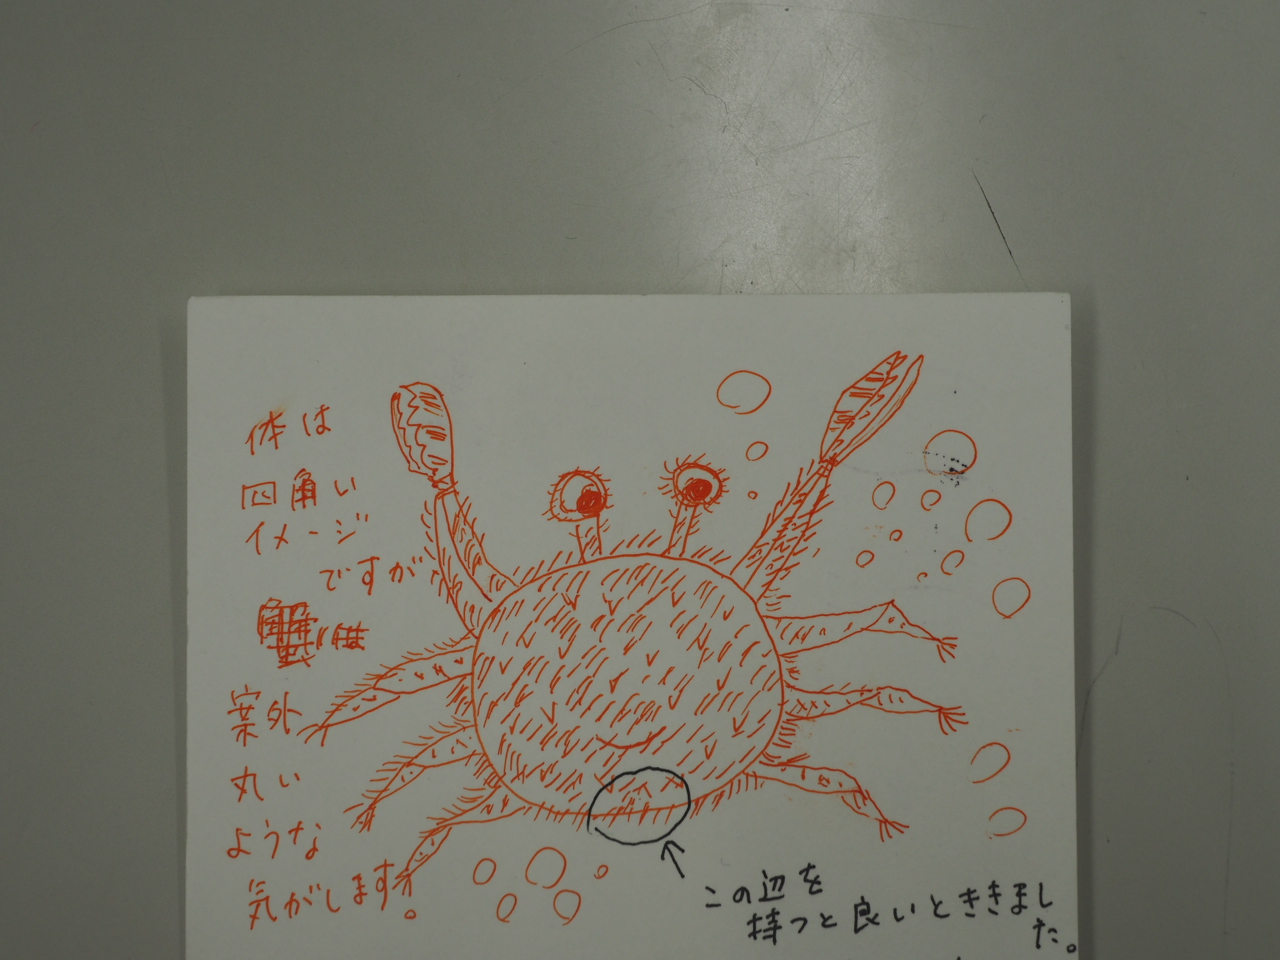 体は
四角い
イメージ
ですが
蟹は
案外
丸い
ような
気がします。
この辺を
持つと良いとききまし
た。